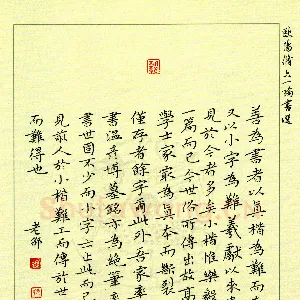 歐陽脩六一論書選
善為書者以真楷為難而
又以小字為難羲獻以來
見於今者多矣小楷惟樂毅
一篇而已今世俗所傳出故高
學士家最為真本而斷裂
僅存者餘字爾此外吾家率
書溫彥博墓銘亦為絕筆率
書世固不少而小字亦止此而已
見前人於小楷難工而傳於世
而難得也
老邵